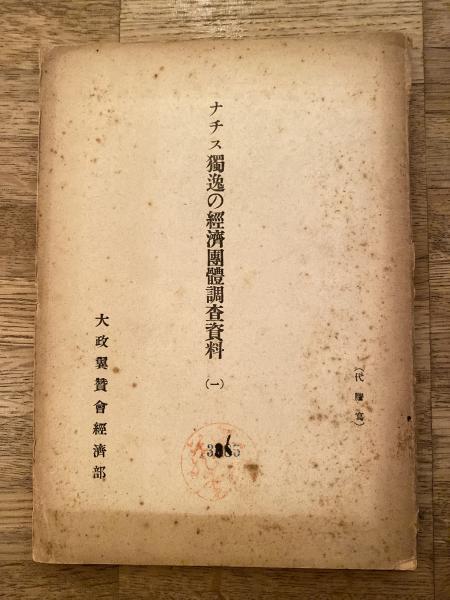 （代謄寫）
ナチス獨逸の經濟團體調查資料
（一）
大政翼贊會經濟部